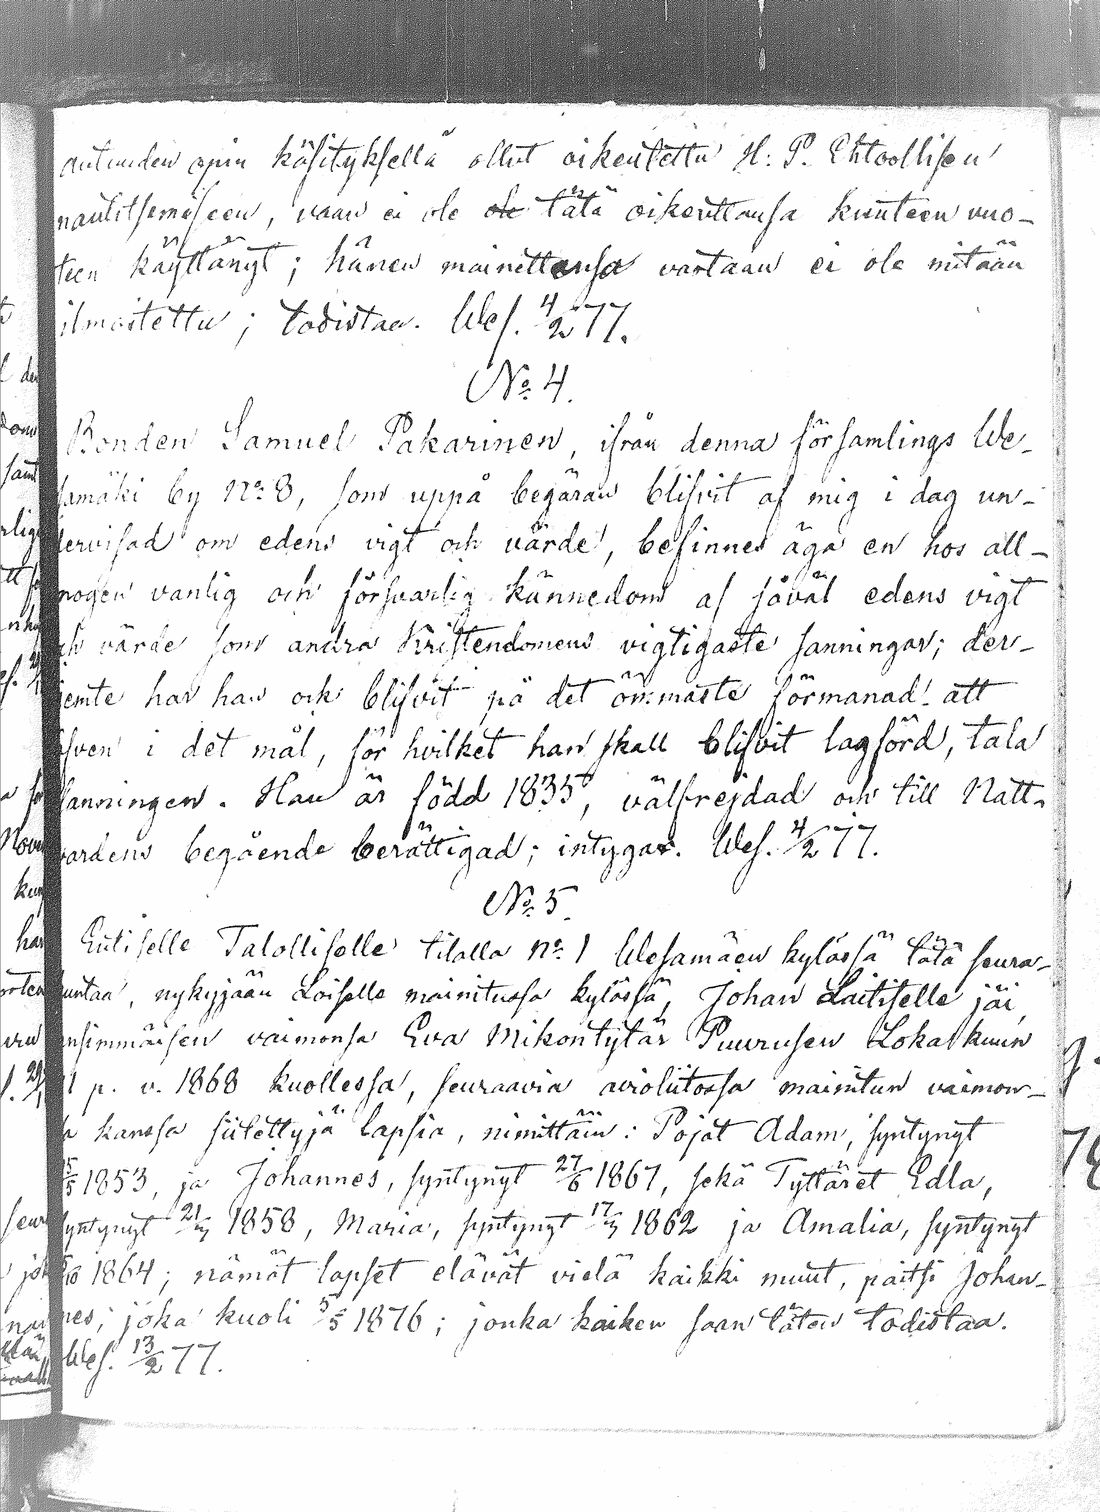 autuuden opin käsityksellä ollut oikeutettu H. P. Ehtoollisen
nautitsemiseen, vaan ei ole ole tätä oikeuttansa kuuteen vuo-
teen käyttänyt; hänen mainettansa vastaan ei ole mitään
ilmoitettu; todistaa. Wes. 4/2 77.
No 4.
Bonden Samuel Pakarinen, ifrån denna församlings We-
samäki by No 8, som uppå begäran blifvit af mig i dag un-
dervisad om edens vigt och värde, befinnes äga en hos all-
mogen vanlig och försvarlig kännedom af såväl edens vigt
och värde som andra Kristendomens vigtigaste sanningar; der-
jemte har han ock blifvit på det ömmaste förmanad att
äfven i det mål, för hvilket han skall blifvit lagförd, tala
sanningen. Han är född 1835, välfrejdad och till Natt-
vardens begående berättigad; intygar. Wes. 4/2 77.
No 5.
Entiselle Talolliselle tilalla no 1 Wesamäen kylässä tätä seura-
kuntaa, nykyjään Loiselle mainitussa kylässä, Johan Laitiselle jäi,
ensimmäisen vaimonsa Eva Mikontytär Puurusen Lokakuun
p. v. 1868 kuollessa, seuraavia avioliitossa mainitun vaimon-
sa kanssa siitettyjä lapsia, nimittäin: Pojat Adam, syntynyt
1853, ja Johannes, syntynyt 27/6 1867, sekä Tyttäret Edla,
syntynyt 1858, Maria, syntynyt 1862 ja Amalia, syntynyt
1864; nämät lapset elävät vielä kaikki muut, paitsi Johan-
nes, joka kuoli 1876; jonka kaiken saan täten todistaa.
Wes. 13/2 77.